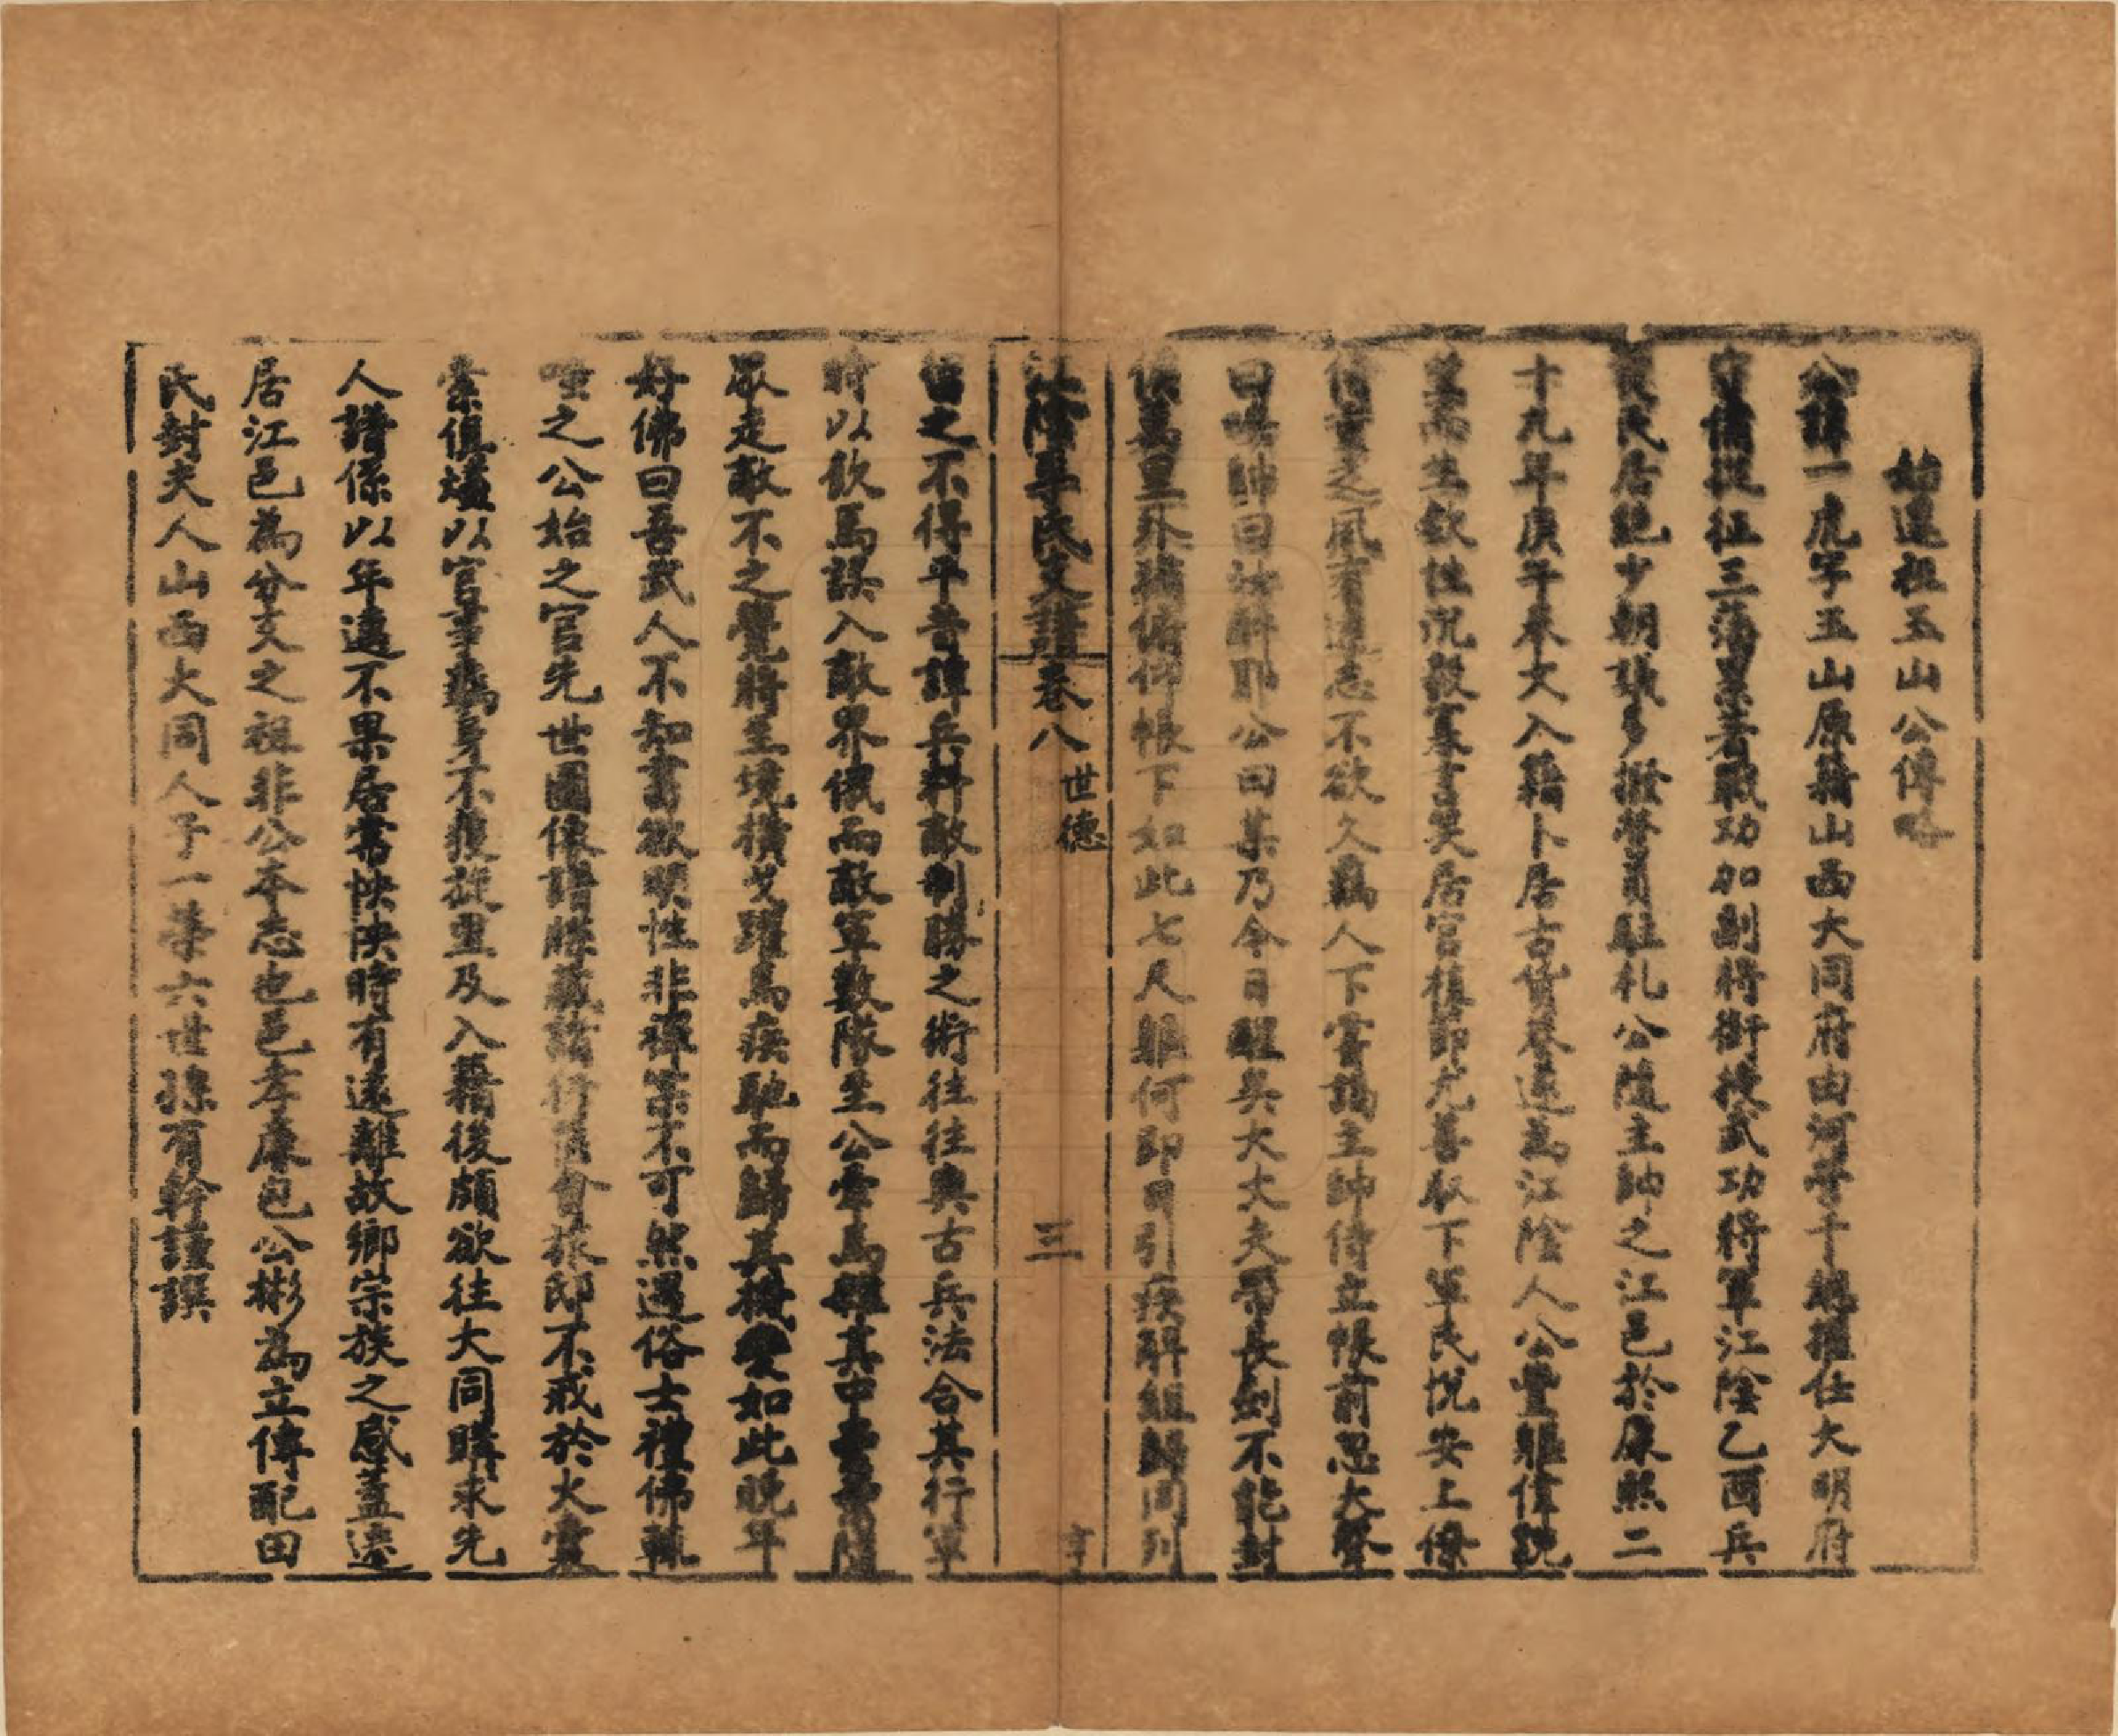 始遷祖玉山公傳略
公諱一虎字玉山原籍山西大同府由河營千總擢仕大明府
守備從征三藩累著戰功加副將銜授武功將軍江陰乙酉兵
後民居絕少朝議多撥營員駐札公隨主帥之江邑於康熙二
十九年庚午奉文入籍卜居古黃巷遂為江陰人公豐軀偉貌
美高生飲性沉毅寡言笑居官操節尤善取下軍民悅安上僚
信重之風有遠志不欲久羈人下嘗謁主帥侍立帳前忽大聲
曰嗟帥曰汝醉耶公曰某乃今日醒矣大丈夫帶長劍不能封
侯萬里外猶俯仰帳下如此七尺軀何即日引疾解組歸同列
江陰李氏支譜卷八 世德 三
留之不得平昔譚兵料敵制勝之術往往與古兵法合其行軍
時以飲馬誤入敵界俄而敵軍數隊至公牽馬雜其中
眾走敵不之覺將至境橫戈躍馬疾馳而歸其機變如此晚年
好佛曰吾武人不知書欲明性非禪宗不可然遇俗士禮佛輒
嗤之公始之官先世圖像譜牒藏諸行篋會旅邸不戒於火囊
橐俱燼以官事羈身不獲旋里及入籍後頗欲往大同購求先
人譜係以年遠不果居常怏怏時有遠離故鄉宗族之感蓋遷
居江邑為分支之祖非公本志也邑孝廉包公彬為立傳配田
氏封夫人山西大同人子一榮六世孫有幹謹譔